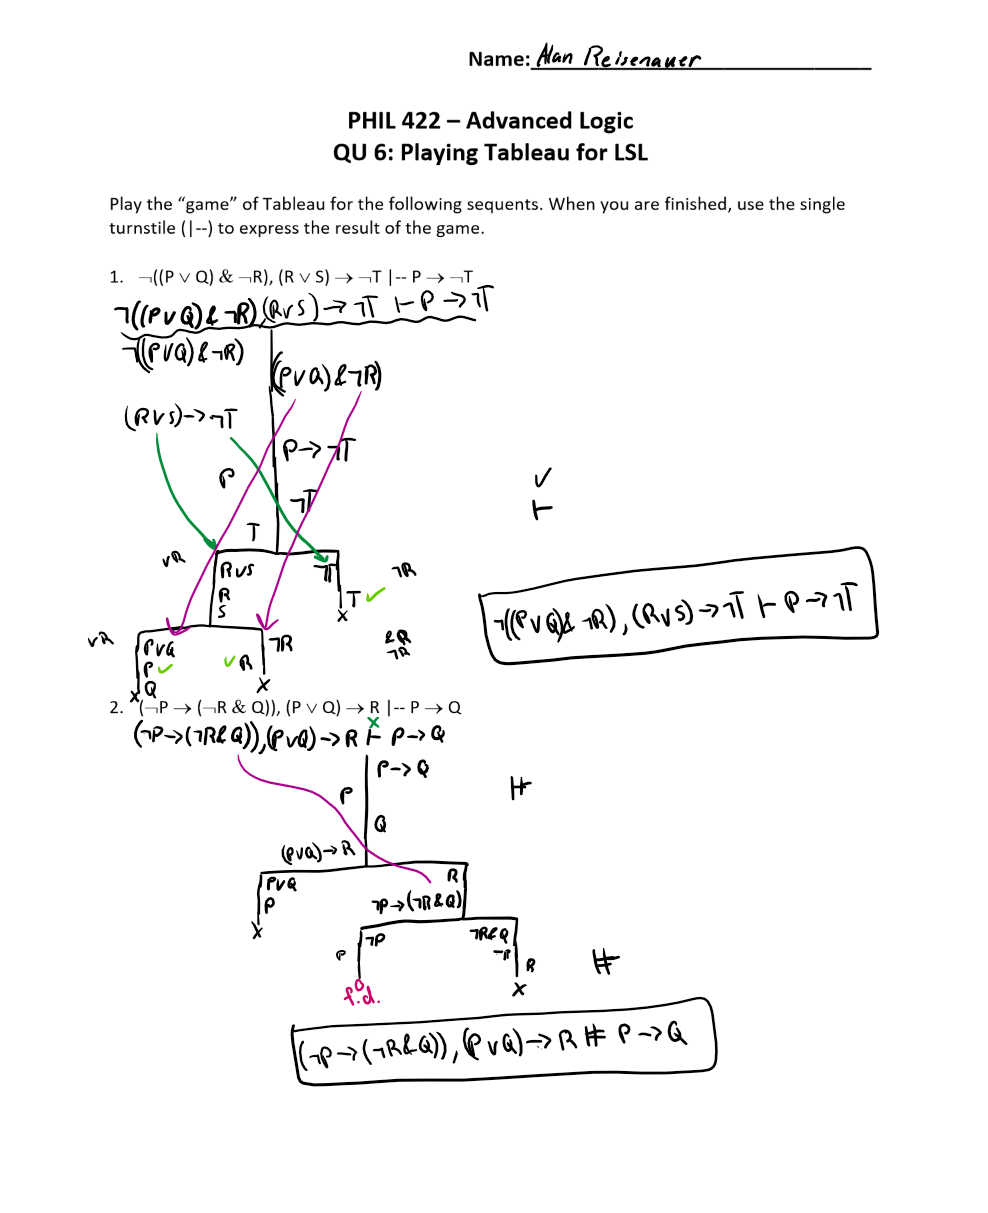 Name: Alan Reisenauer
PHIL 422 – Advanced Logic
QU 6: Playing Tableau for LSL
Play the “game” of Tableau for the following sequents. When you are finished, use the single
turnstile (|--) to express the result of the game.
1. ¬((P ∨ Q) & ¬R), (R ∨ S) → ¬T |-- P → ¬T
¬((P∨Q)&¬R),(R∨S)→¬T ⊢P→¬T
¬((P∨Q)&¬R)
((P∨Q)&¬R)
(R∨S)->¬T
P->¬T
P
✓
¬T
⊢
T
∨R
R∨S
¬T
¬R
R
T ✓
S
X
¬((P∨Q)&¬R),(R∨S)->¬T ⊢ P->¬T
∨R
P∨Q
¬R
&R
¬R
P ✓
✓R
Q
X
X
2. (¬P → (¬R & Q)), (P ∨ Q) → R |-- P → Q
X
(¬P->(¬R&Q)),(P∨Q)->R ⊢ P->Q
P->Q
P
⊬
Q
(P∨Q)->R
P∨Q
R
P
¬P->(¬R&Q)
X
¬P
¬R&Q
P
¬R
R
⊬
o
X
f.d.
(¬P->(¬R&Q)),(P∨Q)->R ⊬ P->Q